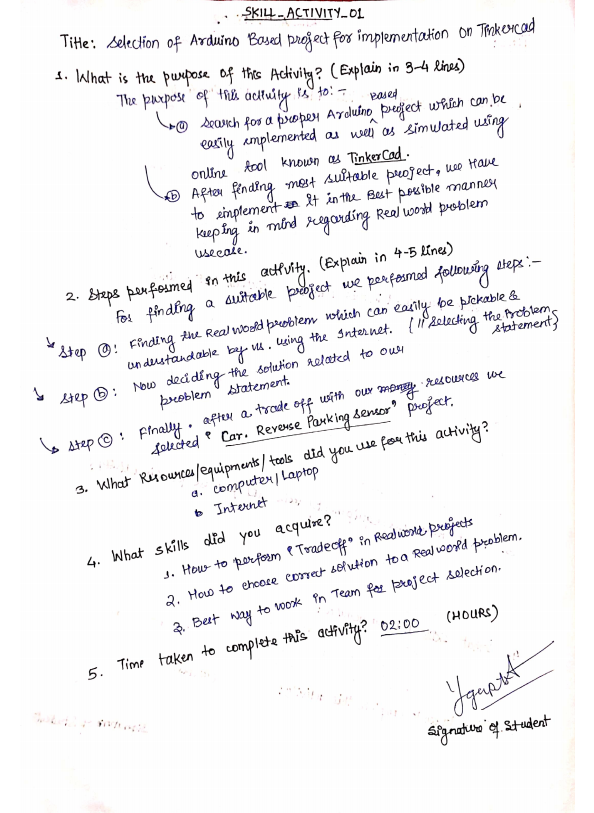 SKILL_ACTIVITY_01
Title: Selection of Arduino Based project for implementation on Tinkercad
1. What is the purpose of this Activity? (Explain in 3-4 lines)
The purpose of this activity is to:-
ⓐ Search for a proper Arduino Based project which can be
easily implemented as well as simulated using
online tool known as TinkerCad.
ⓑ After finding most suitable project, we Have
to implement it in the Best possible manner
keeping in mind regarding Real world problem
usecase.
2. Steps performed in this activity. (Explain in 4-5 lines)
For finding a suitable project we performed following steps:-
Step ⓐ: Finding the Real world problem which can easily be pickable &
understandable by us. using the Internet. {"Selecting the problem
statement}
Step ⓑ: Now deciding the solution related to our
problem statement.
Step ⓒ: Finally. after a trade off with our money resources we
selected "Car. Reverse Parking sensor" project.
3. What Resources/equipments/tools did you use for this activity?
a. computer/Laptop
b Internet
4. What skills did you acquire?
1. How to perform "Tradeoff" in Realworld projects
2. How to choose correct solution to a Real world problem.
3. Best way to work in Team for project selection.
5. Time taken to complete this activity? 02:00 (HOURS)
Ygupta
Signature of Student